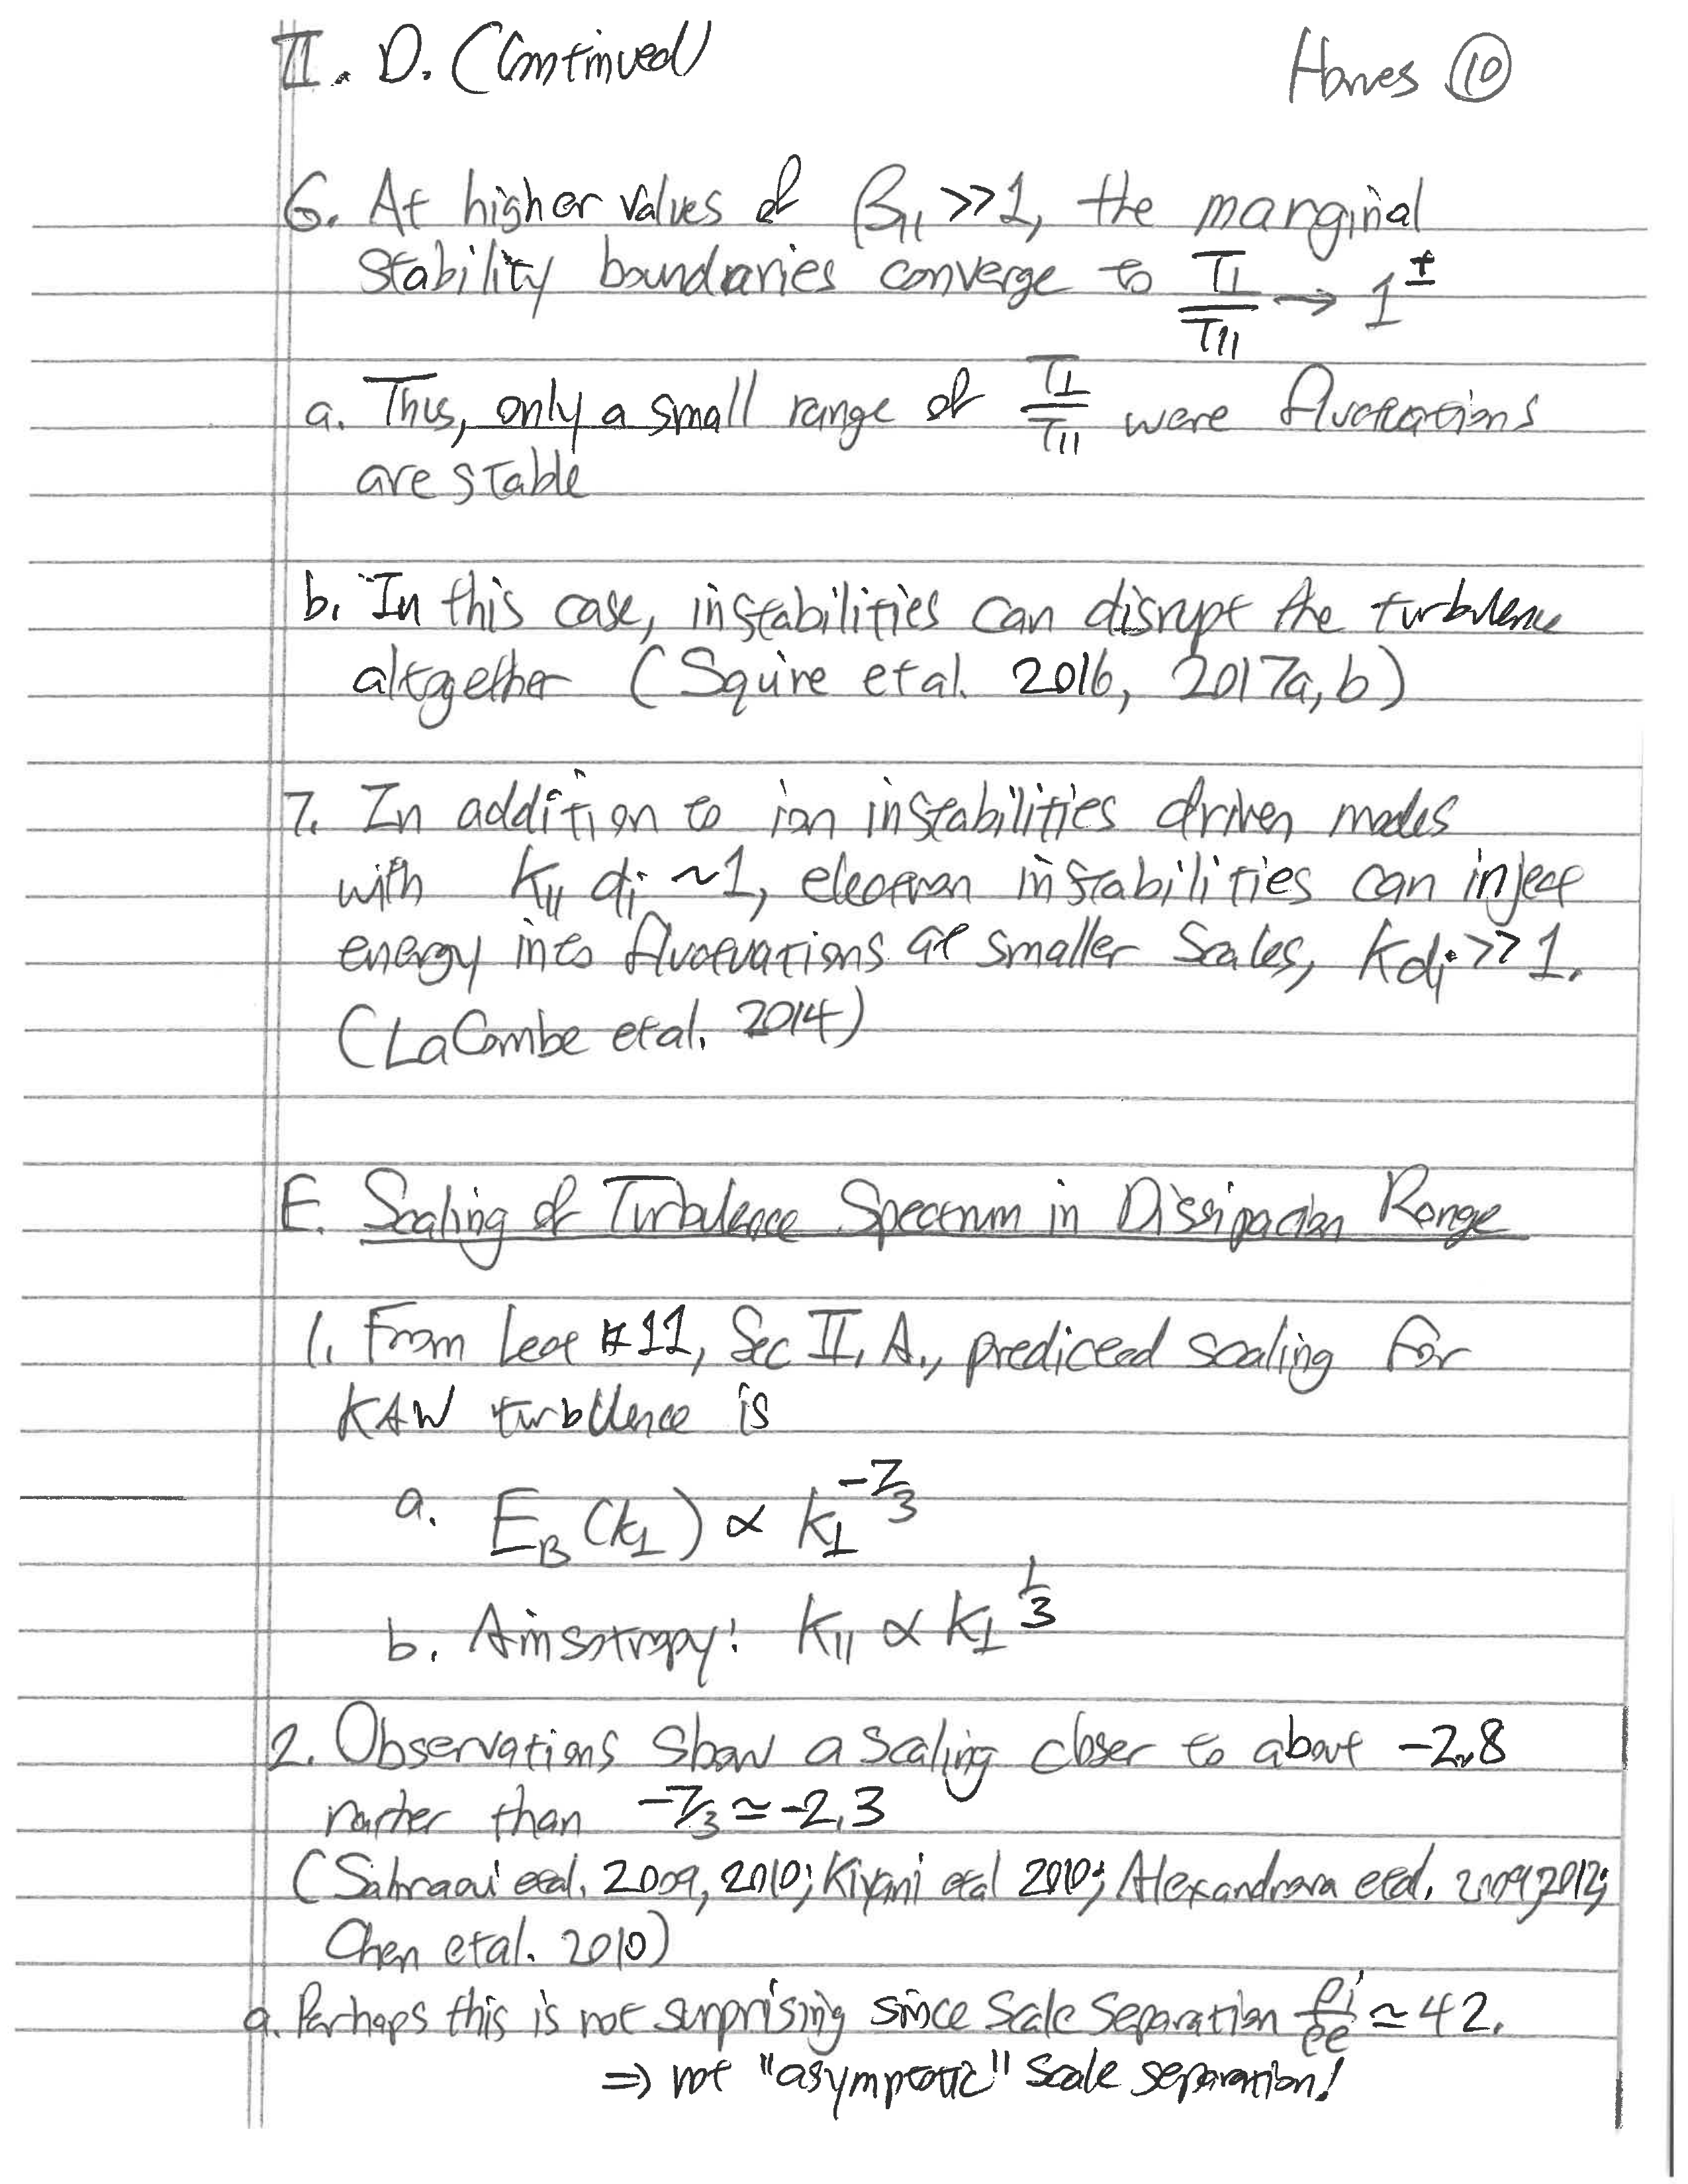 II. D. (Continued)
Howes ⑩
6. At higher values of β∥ >> 1, the marginal
stability boundaries converge to T⊥/T∥ → 1±
a. Thus, only a small range of T⊥/T∥ were fluctuations
are stable
b. In this case, instabilities can disrupt the turbulence
altogether (Squire et al. 2016, 2017a, b)
7. In addition to ion instabilities driven modes
with k∥ di ~ 1, electron instabilities can inject
energy into fluctuations at smaller scales, kdi >> 1.
(LaCombe et al. 2014)
E. Scaling of Turbulence Spectrum in Dissipation Range
1. From Lect #11, Sec II. A., predicted scaling for
KAW turbulence is
a. E_B (k⊥) ∝ k⊥^-7/3
b. Ainsotropy: k∥ ∝ k⊥^1/3
2. Observations show a scaling closer to about -2.8
rather than -7/3 ≃ -2.3
(Sahraoui et al. 2009, 2010; Kiyani et al 2010; Alexandrova et al. 2009, 2012;
Chen et al. 2010)
a. Perhaps this is not surprising since scale separation ρi/ρe ≃ 42.
⇒ not "asymptotic" scale separation!